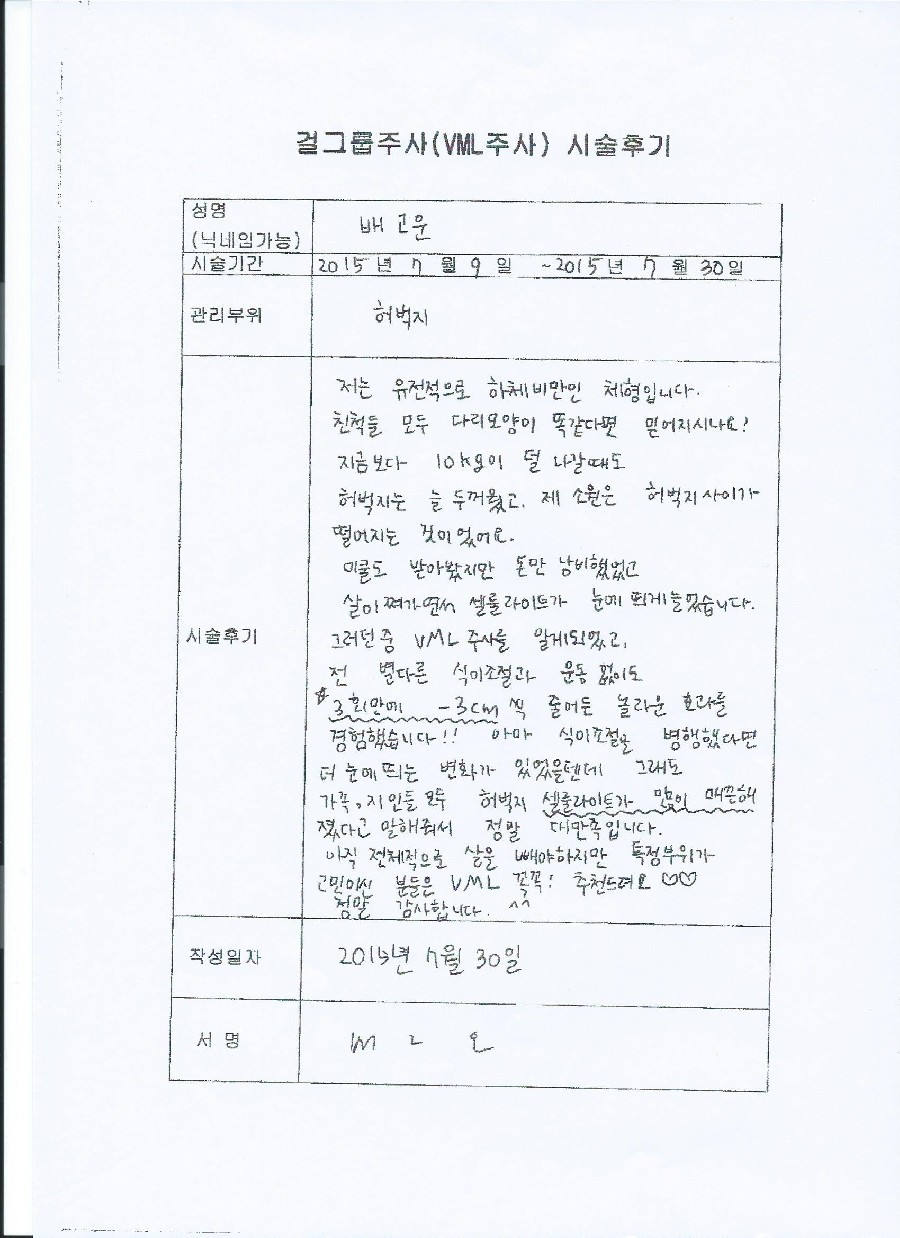 걸그룹주사(VML주사) 시술후기
성명
(닉네임가능)
배고운
시술기간
2015년 7월 9일 ~2015년 7월 30일
관리부위
허벅지
시술후기
저는 유전적으로 하체비만인 체형입니다.
친척들 모두 다리모양이 똑같다면 믿어지시나요?
지금보다 10kg이 덜 나갈때도
허벅지는 늘 두꺼웠고, 제 소원은 허벅지사이가
떨어지는 것이었어요.
미쿨도 받아봤지만 돈만 낭비했었고
살이쪄가면서 셀룰라이트가 눈에 띄게늘었습니다.
그러던중 VML주사를 알게되었고,
전 별다른 식이조절과 운동 없이도
☆3회만에 -3cm씩 줄어든 놀라운 효과를
경험했습니다!! 아마 식이조절을 병행했다면
더 눈에띄는 변화가 있었을텐데 그래도
가족,지인들 모두 허벅지 셀룰라이트가 많이 매끈해
졌다고 말해줘서 정말 대만족입니다.
아직 전체적으로 살을 빼야하지만 특정부위가
고민이신 분들은 VML 꼭꼭! 추천드려요♡♡
정말 감사합니다. ^^
작성일자
2015년 7월 30일
서 명